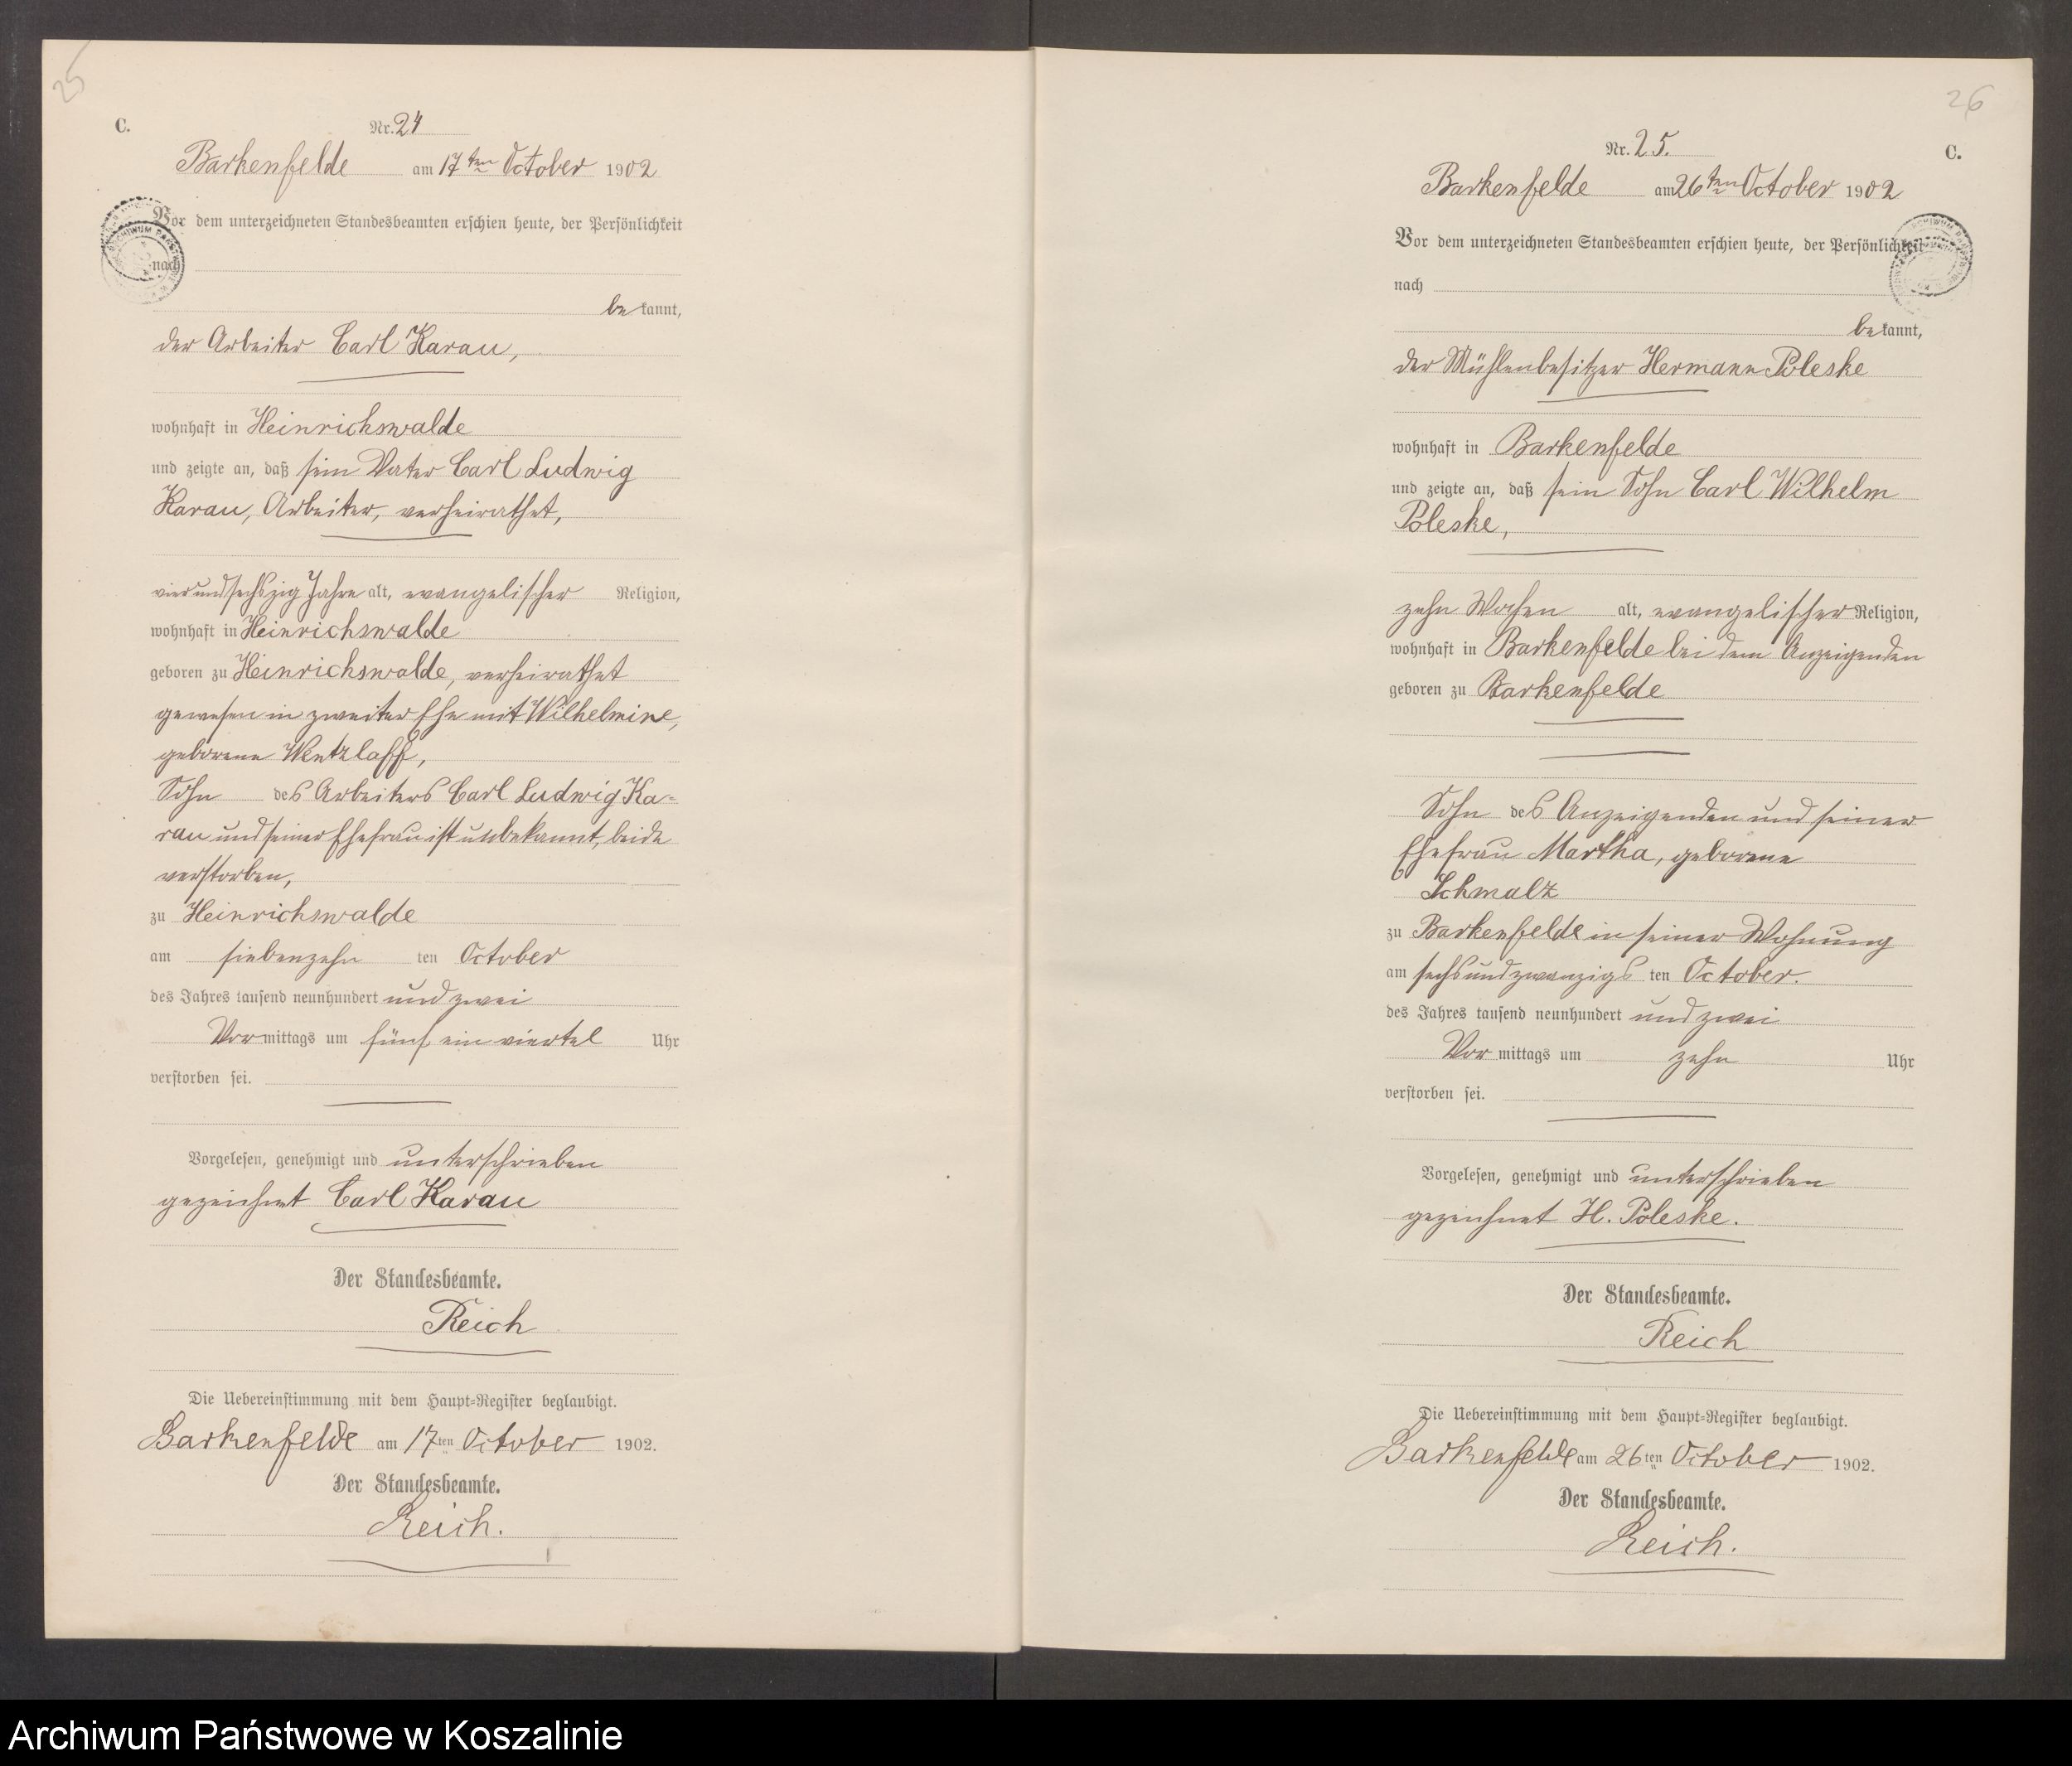 25
C.
Nr. 24
Barkenfelde am 17ten October 1902
Vor dem unterzeichneten Standesbeamten erschien heute, der Persönlichkeit
nach
bekannt,
der Arbeiter Carl Karau,
wohnhaft in Heinrichswalde
und zeigte an, daß sein Vater Carl Ludwig
Karau, Arbeiter, verheirathet,
vierundsechszig Jahre alt, evangelischer Religion,
wohnhaft in Heinrichswalde
geboren zu Heinrichswalde, verheirathet
gewesen in zweiter Ehe mit Wilhelmine,
geborene Wentzlaff,
Sohn des Arbeiters Carl Ludwig Ka-
rau und seiner Ehefrau ist unbekannt, beide
verstorben,
zu Heinrichswalde
am siebenzehn ten October
des Jahres tausend neunhundert und zwei
Vormittags um fünf ein viertel Uhr
verstorben sei.
Vorgelesen, genehmigt und unterschrieben
gezeichnet Carl Karau
Der Standesbeamte.
Reich
Die Uebereinstimmung mit dem Haupt-Register beglaubigt.
Barkenfelde am 17ten October 1902.
Der Standesbeamte.
Reich.
26
Nr. 25.
C.
Barkenfelde am 26ten October 1902
Vor dem unterzeichneten Standesbeamten erschien heute, der Persönlichkeit
nach
bekannt,
der Mühlenbesitzer Hermann Poleske
wohnhaft in Barkenfelde
und zeigte an, daß sein Sohn Carl Wilhelm
Poleske,
zehn Wochen alt, evangelischer Religion,
wohnhaft in Barkenfelde bei dem Anzeigenden
geboren zu Barkenfelde
Sohn des Anzeigenden und seiner
Ehefrau Martha, geborene
Schmalz
zu Barkenfelde in seiner Wohnung
am sechsundzwanzigs ten October.
des Jahres tausend neunhundert und zwei
Vormittags um zehn Uhr
verstorben sei.
Vorgelesen, genehmigt und unterschrieben
gezeichnet H. Poleske.
Der Standesbeamte.
Reich
Die Uebereinstimmung mit dem Haupt-Register beglaubigt.
Barkenfelde am 26ten October 1902.
Der Standesbeamte.
Reich.
Archiwum Państwowe w Koszalinie